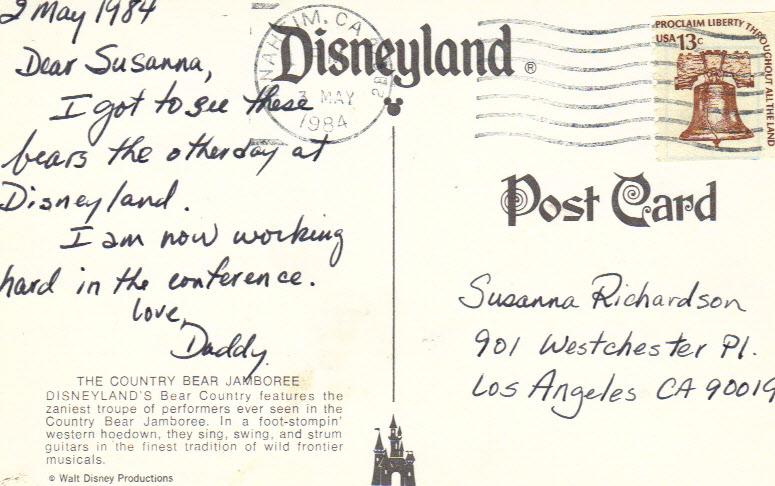 2 May 1984
Dear Susanna,
I got to see these
bears the other day at
Disneyland.
I am now working
hard in the conference.
Love,
Daddy
THE COUNTRY BEAR JAMBOREE
DISNEYLAND'S Bear Country features the
zaniest troupe of performers ever seen in the
Country Bear Jamboree. In a foot-stompin'
western hoedown, they sing, swing, and strum
guitars in the finest tradition of wild frontier
musicals.
© Walt Disney Productions
Disneyland ®
ANAHEIM, CA
3 MAY
1984
PROCLAIM LIBERTY THROUGHOUT ALL THE LAND
USA 13c
Post Card
Susanna Richardson
901 Westchester Pl.
Los Angeles CA 90019